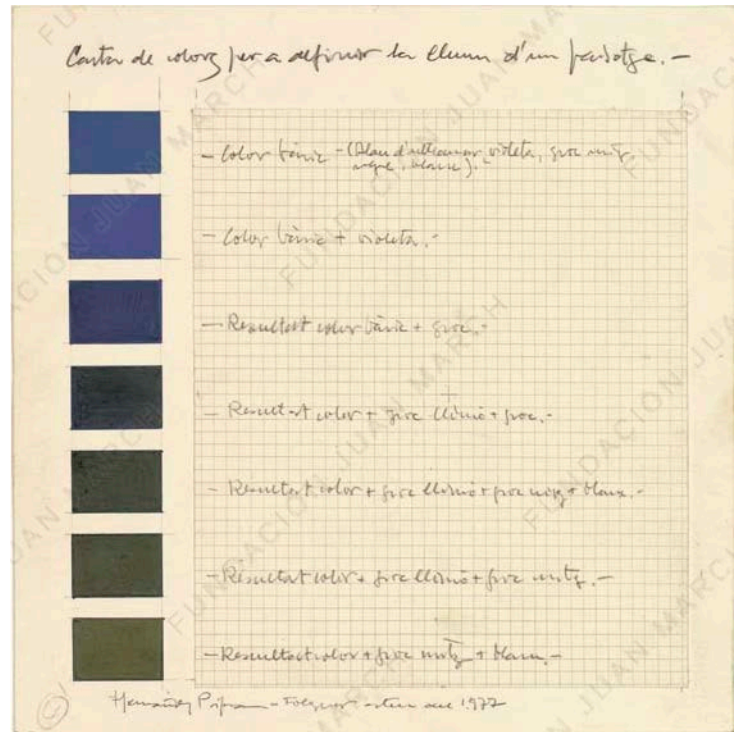 Carta de colors per a definir la llum d'un paisatge.-
- Color bàsic - (Blau d'ultramar violeta, groc mitg,
negre, blanc).-
- Color bàsic + violeta.-
- Resultat color bàsic + groc.-
- Resultat color + groc llimó + groc.-
- Resultat color + groc llimó + groc mitg + blanc.-
- Resultat color + groc llimó + groc mitg.-
- Resultat color + groc mitg + blanc.-
Hernández Pijoan - Folquer 1977
FUNDACION JUAN MARCH